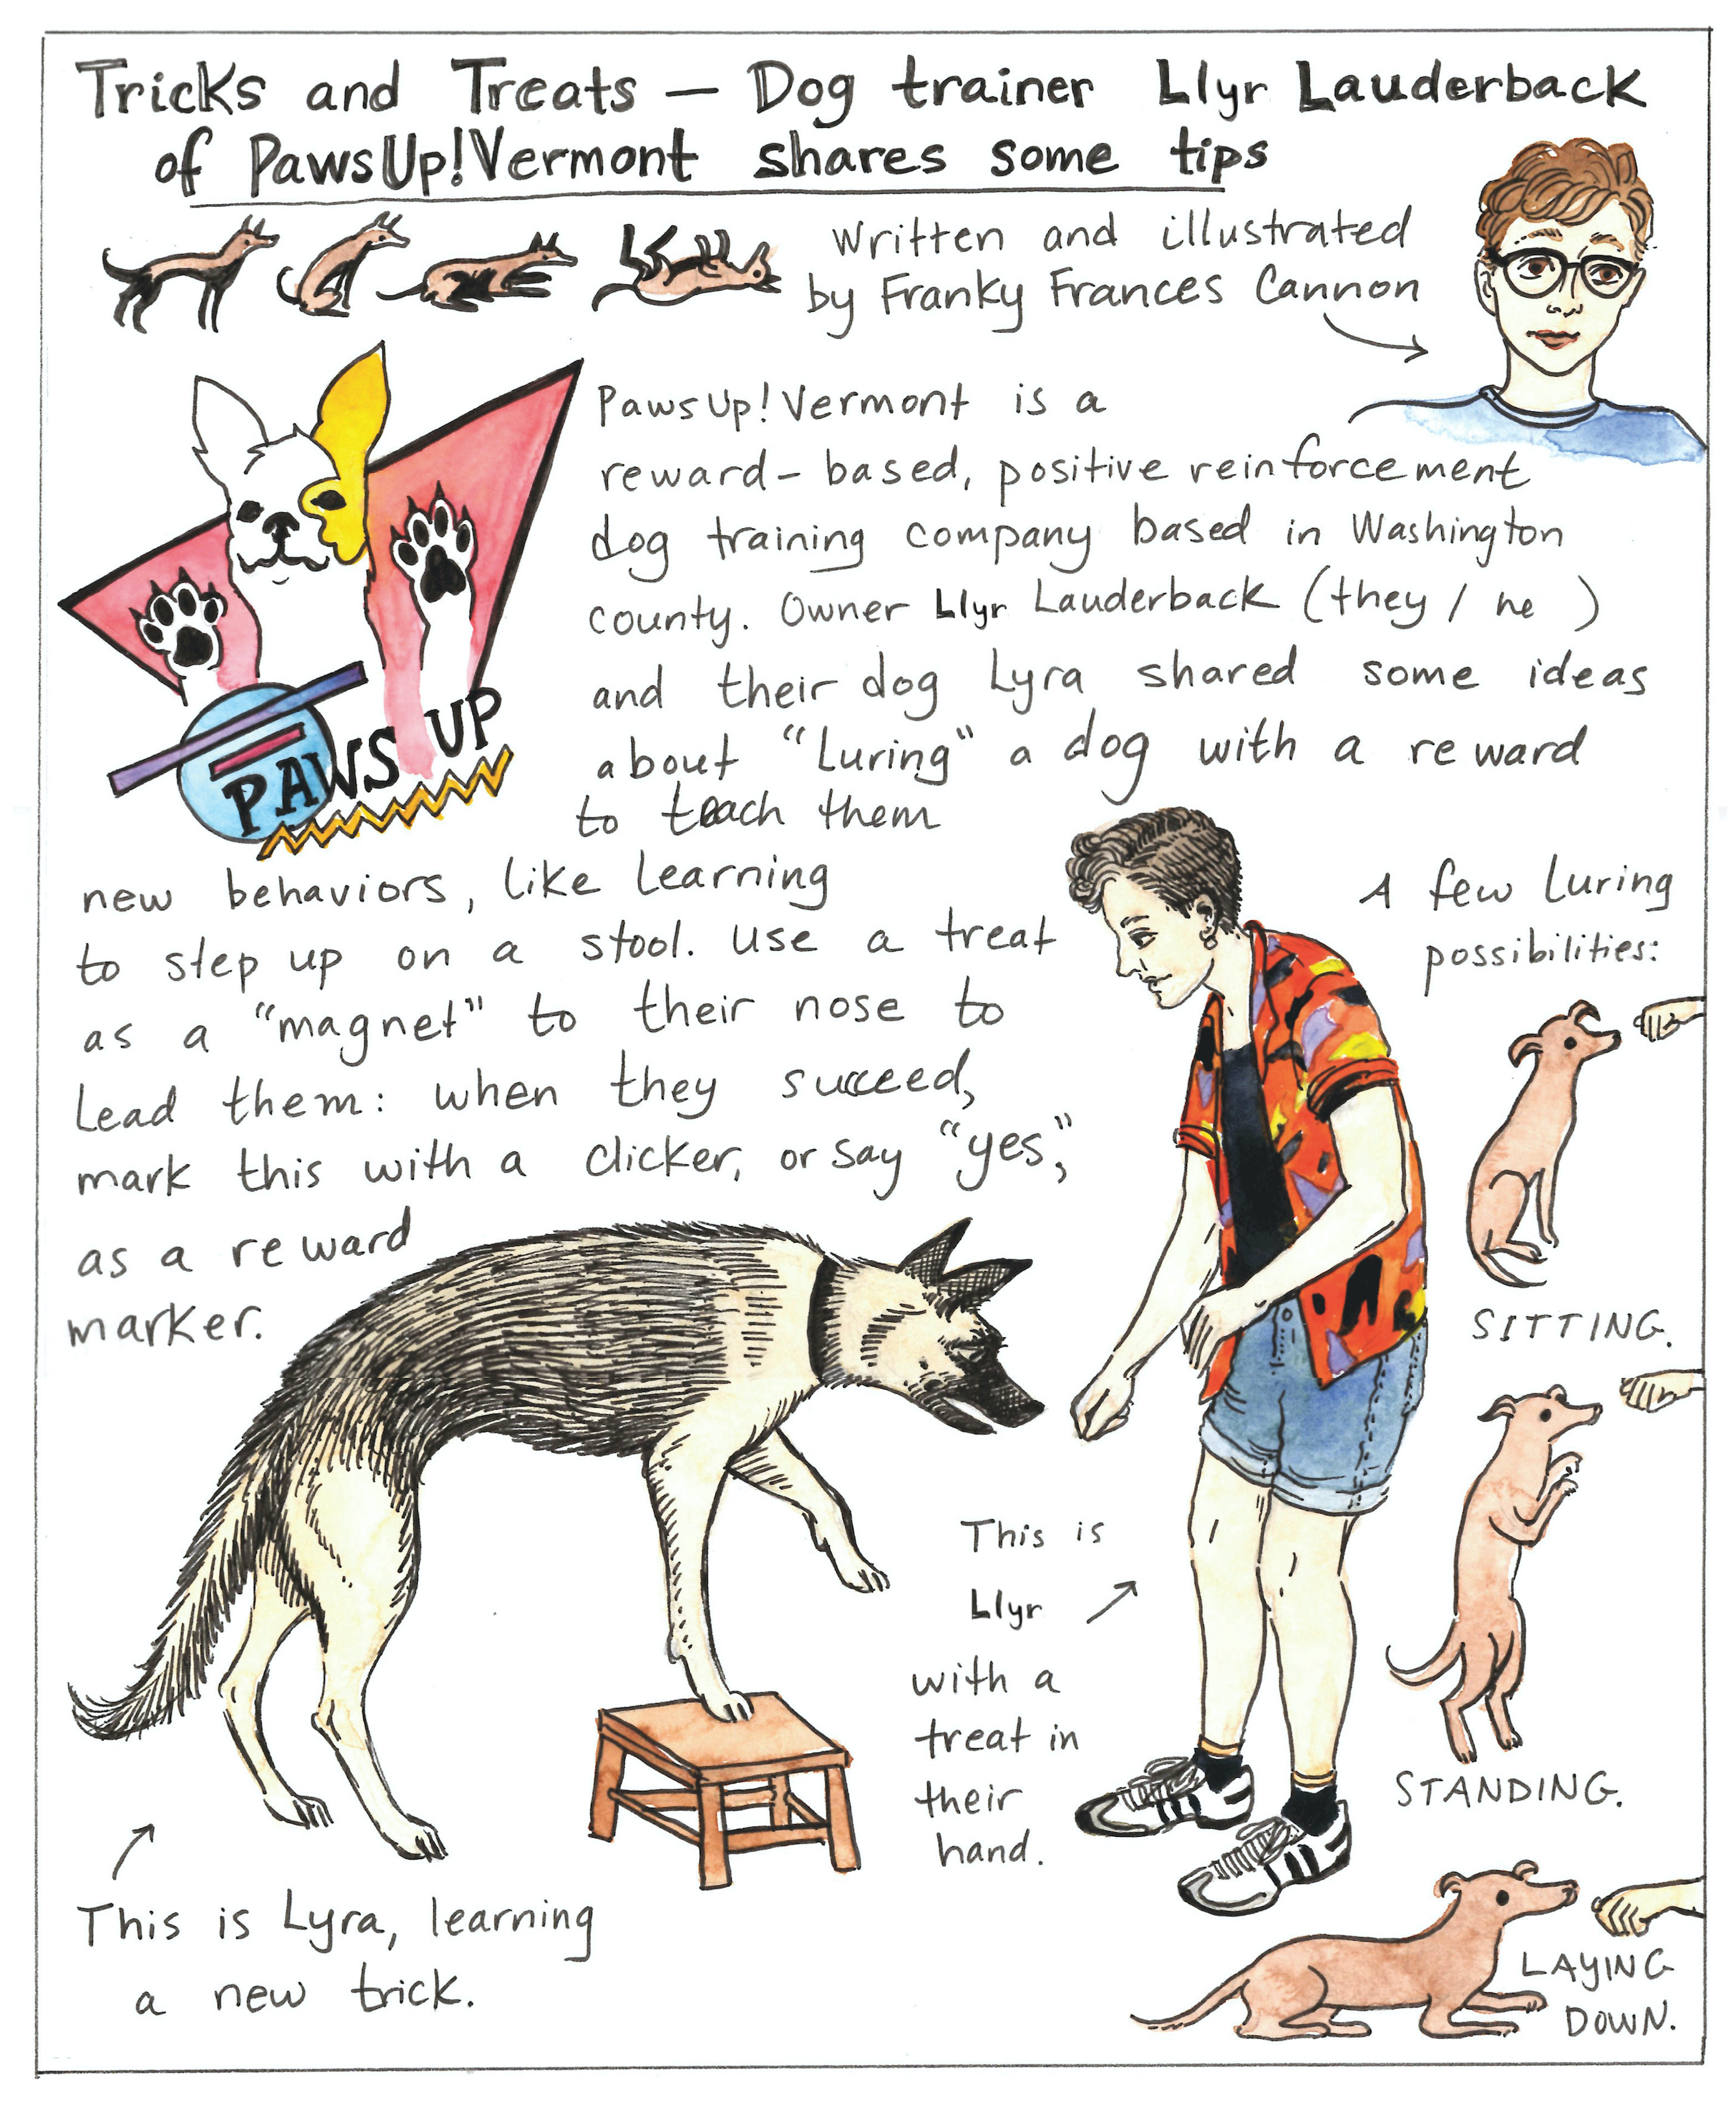 Tricks and Treats — Dog trainer Llyr Lauderback
of PawsUp!Vermont shares some tips
Written and illustrated
by Franky Frances Cannon
PawsUp!Vermont is a
reward-based, positive reinforcement
dog training company based in Washington
county. Owner Llyr Lauderback (they / he )
and their dog Lyra shared some ideas
about "Luring" a dog with a reward
to teach them
new behaviors, like learning
to step up on a stool. Use a treat
as a "magnet" to their nose to
Lead them: when they succeed,
mark this with a clicker, or say "yes,"
as a reward
marker.
PAWS UP
A few Luring
possibilities:
SITTING.
STANDING.
LAYING
DOWN.
This is
Llyr
with a
treat in
their
hand.
This is Lyra, learning
a new trick.